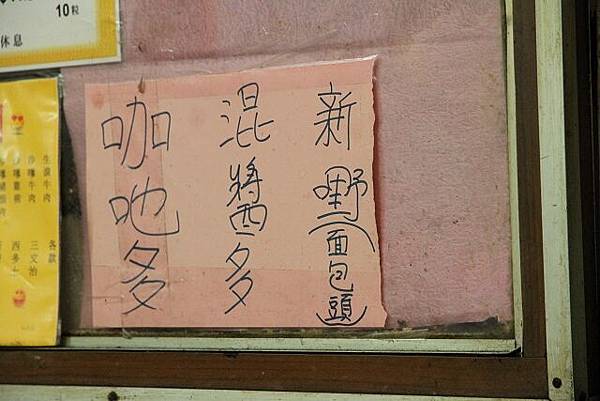 新嘢(面包頭)
混醬多
咖吔多
10粒
休息
各款
三文治
西多士
生滾牛肉
沙嗲牛肉